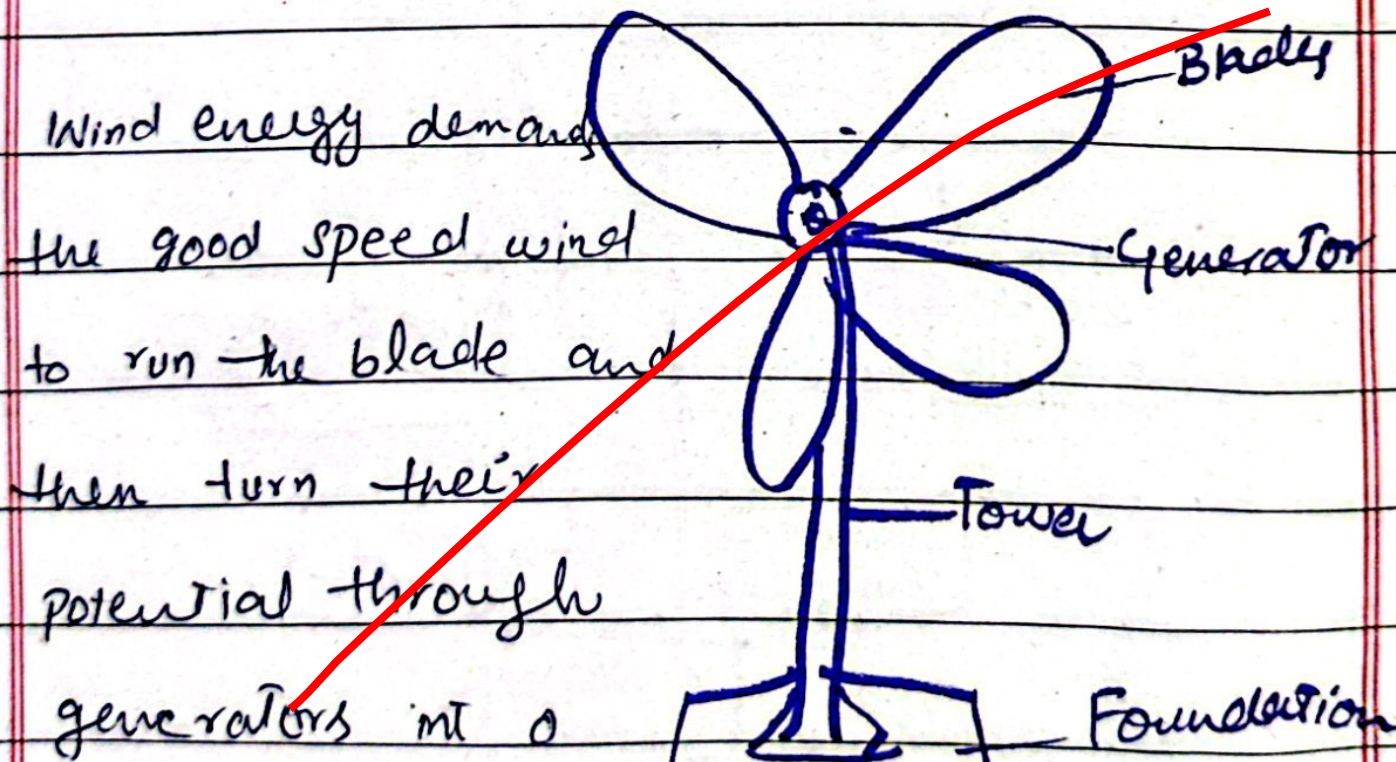 Wind energy demands
the good speed wind
to run the blade and
then turn their
potential through
generators int o
Blades
Generator
Tower
Foundation